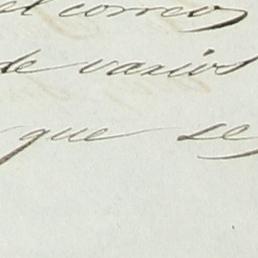 el correo
de varios
que se